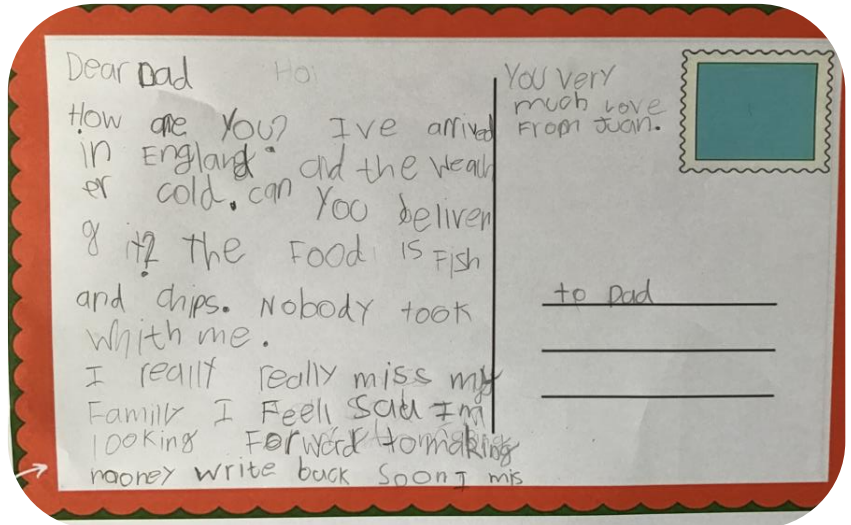 Dear Dad
How are You? I've arrived
in England. and the weath
er cold. can You beliver
g it? The Food is Fish
and chips. Nobody took
whith me.
I really really miss my
Family I Feell Sad Im
looking Forward to making
mooney write back Soon I mis
You very
much Love
From Juan.
to Dad